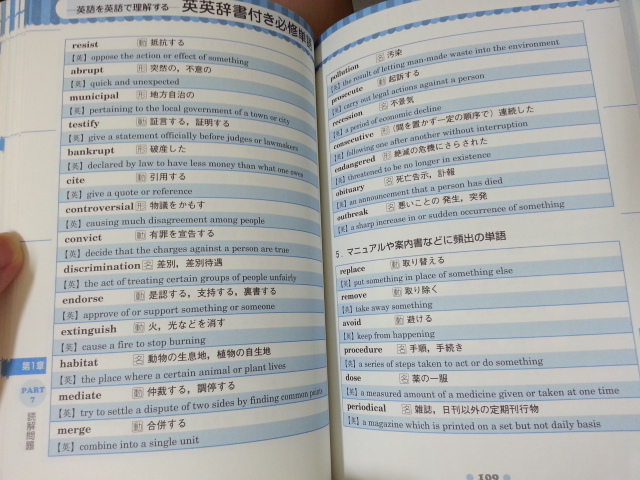 英語を英語で理解する 英英辞書付き必修単語
resist 動 抵抗する
【英】oppose the action or effect of something
abrupt 形 突然の，不意の
【英】quick and unexpected
municipal 形 地方自治の
【英】pertaining to the local government of a town or city
testify 動 証言する，証明する
【英】give a statement officially before judges or lawmakers
bankrupt 形 破産した
【英】declared by law to have less money than what one owes
cite 動 引用する
【英】give a quote or reference
controversial 形 物議をかもす
【英】causing much disagreement among people
convict 動 有罪を宣告する
【英】decide that the charges against a person are true
discrimination 名 差別，差別待遇
【英】the act of treating certain groups of people unfairly
endorse 動 是認する，支持する，裏書する
【英】approve of or support something or someone
extinguish 動 火，光などを消す
【英】cause a fire to stop burning
habitat 名 動物の生息地，植物の自生地
【英】the place where a certain animal or plant lives
mediate 動 仲裁する，調停する
【英】try to settle a dispute of two sides by finding common points
merge 動 合併する
【英】combine into a single unit
第1章
PART
7
読解問題
pollution 名 汚染
【英】the result of letting man-made waste into the environment
prosecute 動 起訴する
【英】carry out legal actions against a person
recession 名 不景気
【英】a period of economic decline
consecutive 形（間を置かず一定の順序で）連続した
【英】following one after another without interruption
endangered 形 絶滅の危機にさらされた
【英】threatened to be no longer in existence
obituary 名 死亡告示，訃報
【英】an announcement that a person has died
outbreak 名 悪いことの 発生，突発
【英】a sharp increase in or sudden occurrence of something
5．マニュアルや案内書などに頻出の単語
replace 動 取り替える
【英】put something in place of something else
remove 動 取り除く
【英】take away something
avoid 動 避ける
【英】keep from happening
procedure 名 手順，手続き
【英】a series of steps taken to act or do something
dose 名 薬の一服
【英】a measured amount of a medicine given or taken at one time
periodical 名 雑誌，日刊以外の定期刊行物
【英】a magazine which is printed on a set but not daily basis